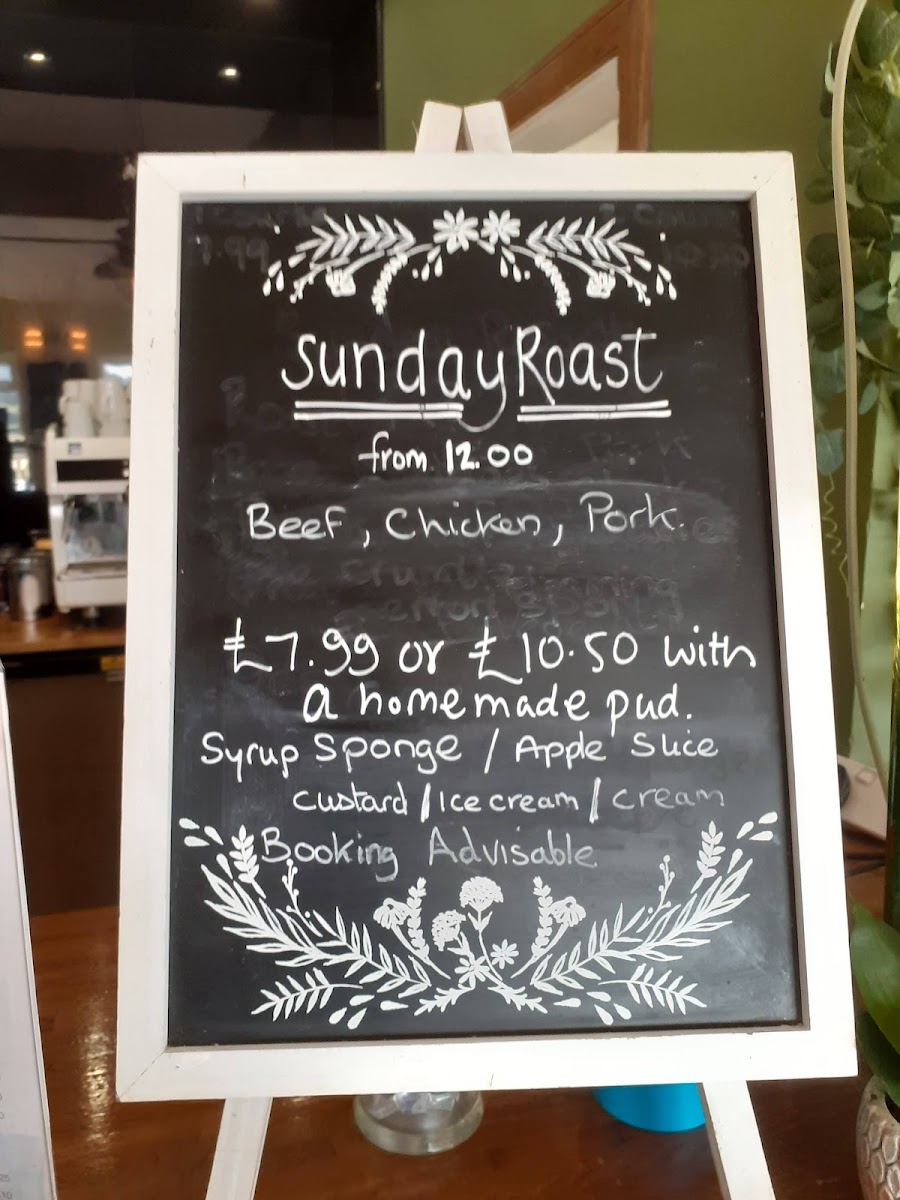 Sunday Roast
from 12.00
Beef, Chicken, Pork.
£7.99 or £10.50 with
a homemade pud.
Syrup Sponge / Apple Slice
custard / Ice cream / cream
Booking Advisable